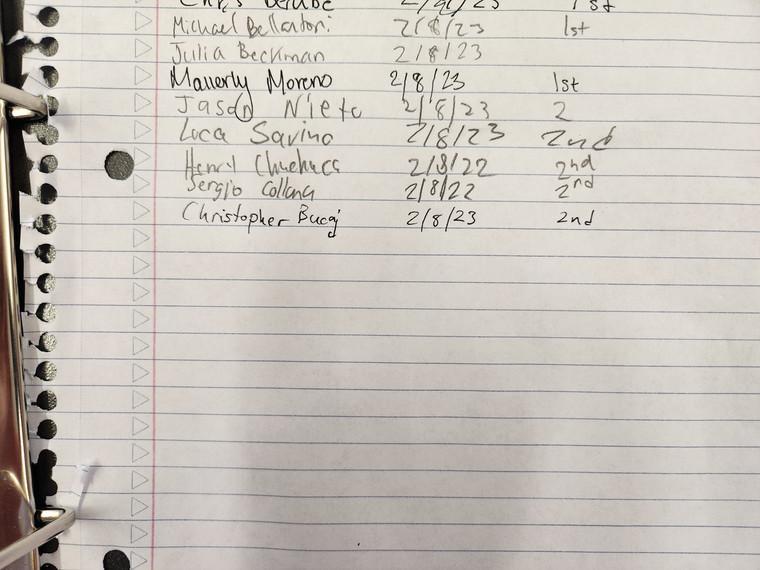 Michael Bellantoni 2/8/23 1st
Julia Beckman 2/8/23
Mallerly Moreno 2/8/23 1st
Jason Nieto 2/8/23 2
Luca Savino 2/8/23 2nd
Henry 2/8/22 2nd
Sergio Collana 2/8/22 2nd
Christopher Bucaj 2/8/23 2nd